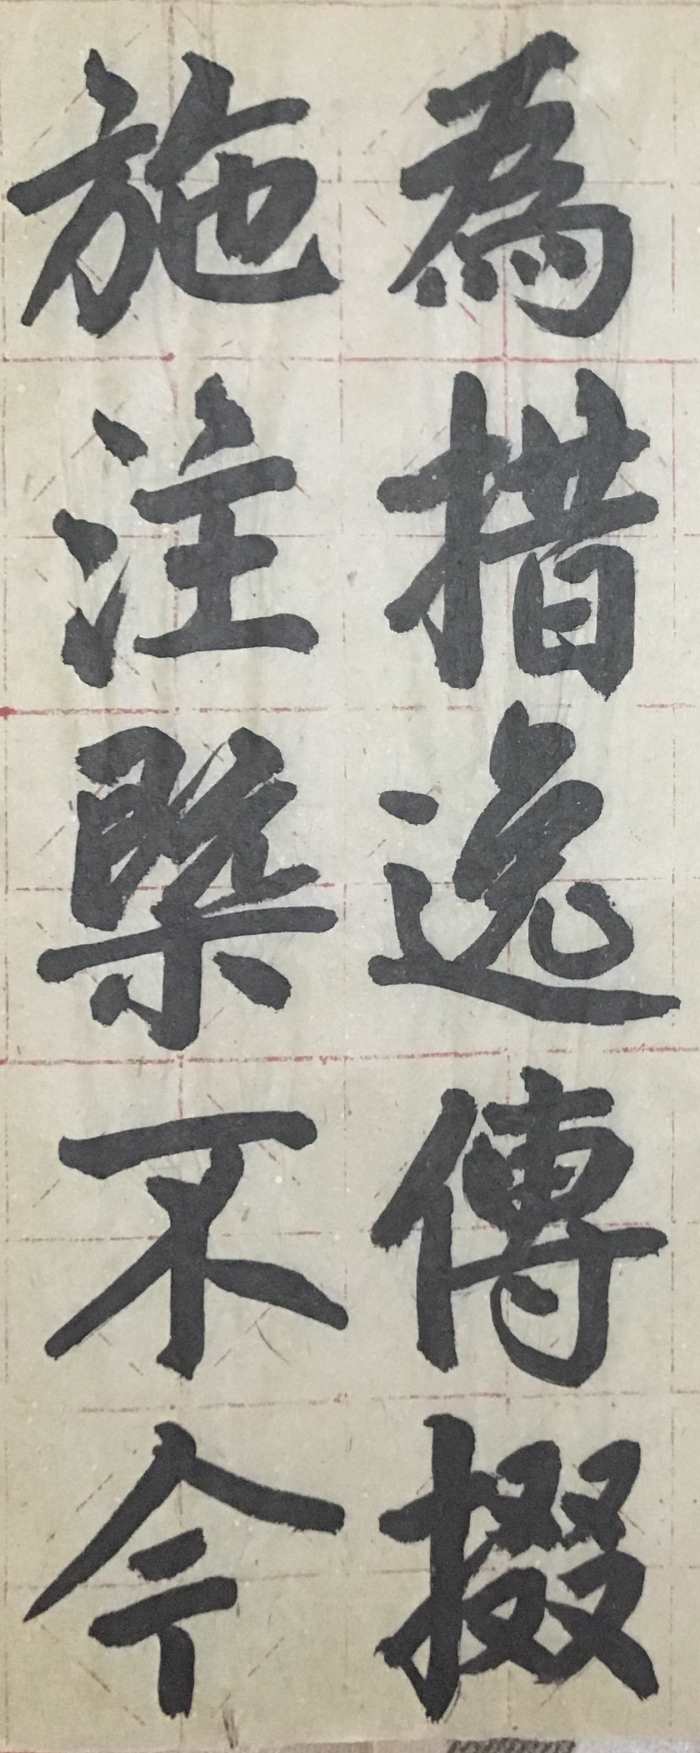 為措逸傳掇
施注槩不今